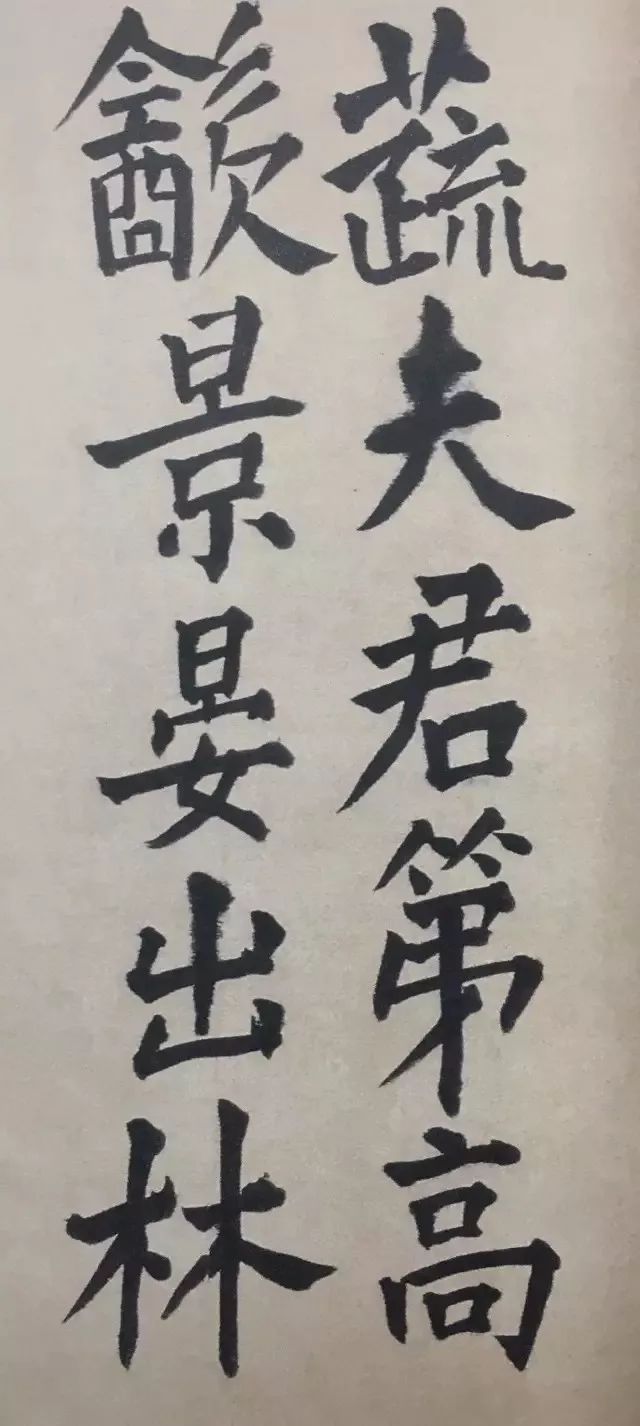 蔬夫君第高
㱃景晏出林